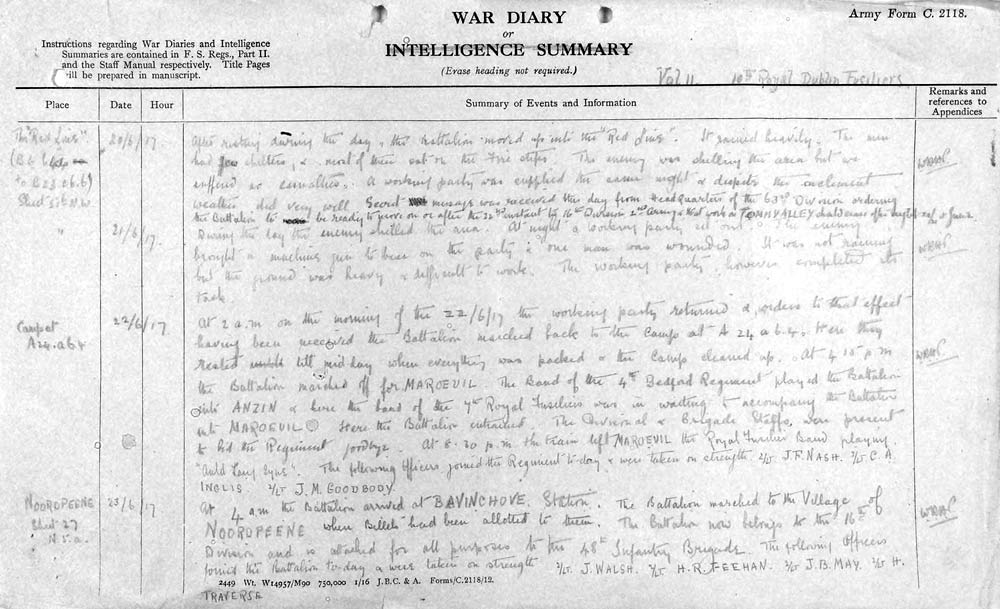 WAR DIARY
or
INTELLIGENCE SUMMARY
(Erase heading not required.)
Army Form C. 2118.
Instructions regarding War Diaries and Intelligence
Summaries are contained in F. S. Regs., Part II.
and the Staff Manual respectively. Title Pages
will be prepared in manuscript.
Vol 11. 10th Royal Dublin Fusiliers
Place Date Hour Summary of Events and Information Remarks and references to Appendices
The "Red Line". 20/6/17 After resting during the day, the Battalion moved up into the "Red Line". It rained heavily. The men
had few shelters, & most of them sat on the fire steps. The enemy was shelling the area but we
suffered no casualties. A working party was supplied the same night & despite the inclement
Sheet 51b N.W. weather did very well. Secret message was received this day from Headquarters of the 63rd Division ordering
the Battalion to be ready to move on or after the 22nd instant to 16th Division 2nd Army & that work on TOMMY ALLEY should cease after night
" 21/6/17. During the day the enemy shelled the area. At night a working party set out. The enemy
brought a machine gun to bear on the party & one man was wounded. It was not raining
but the ground was heavy & difficult to work. The working party, however, completed its
task.
Camp at 22/6/17 At 2 a.m on the morning of the 22/6/17 the working party returned & orders to that effect
A24.a 6.4 having been received the Battalion marched back to the Camp at A 24 a 6.4. Here they
rested until till mid-day when everything was packed & the Camp cleaned up. At 4 15 p.m
the Battalion marched off for MAROEUIL. The Band of the 4th Bedford Regiment played the Battalion
into ANZIN & here the band of the 7th Royal Fusiliers was in waiting to accompany the Battalion
into MAROEUIL. Here the Battalion entrained. The Divisional & Brigade Staffs, were present
to bid the Regiment goodbye. At 8.30 p.m the train left MAROEUIL the Royal Fusilier Band playing
"Auld Lang Syne". The following Officers joined the Regiment to-day & were taken on strength. 2/Lt J.F. NASH. 2/Lt C.A.
INGLIS. 2/Lt J.M. GOODBODY.
NOORDPEENE 23/6/17 At 4 am the Battalion arrived at BAVINCHOVE Station. The Battalion marched to the Village of
Sheet 27 NOORDPEENE where Billets had been allotted to them. The Battalion now belongs to the 16th
N.5.a. Division and is attached for all purposes to the 48th Infantry Brigade. The following Officers
joined the Battalion to-day & were taken on strength 2/Lt J. WALSH. 2/Lt H.R. FEEHAN. 2/Lt J.B. MAY. 2/Lt H.
2449 Wt. W14957/M90 750,000 1/16 J.B.C. & A. Forms/C.2118/12.
TRAVERSE